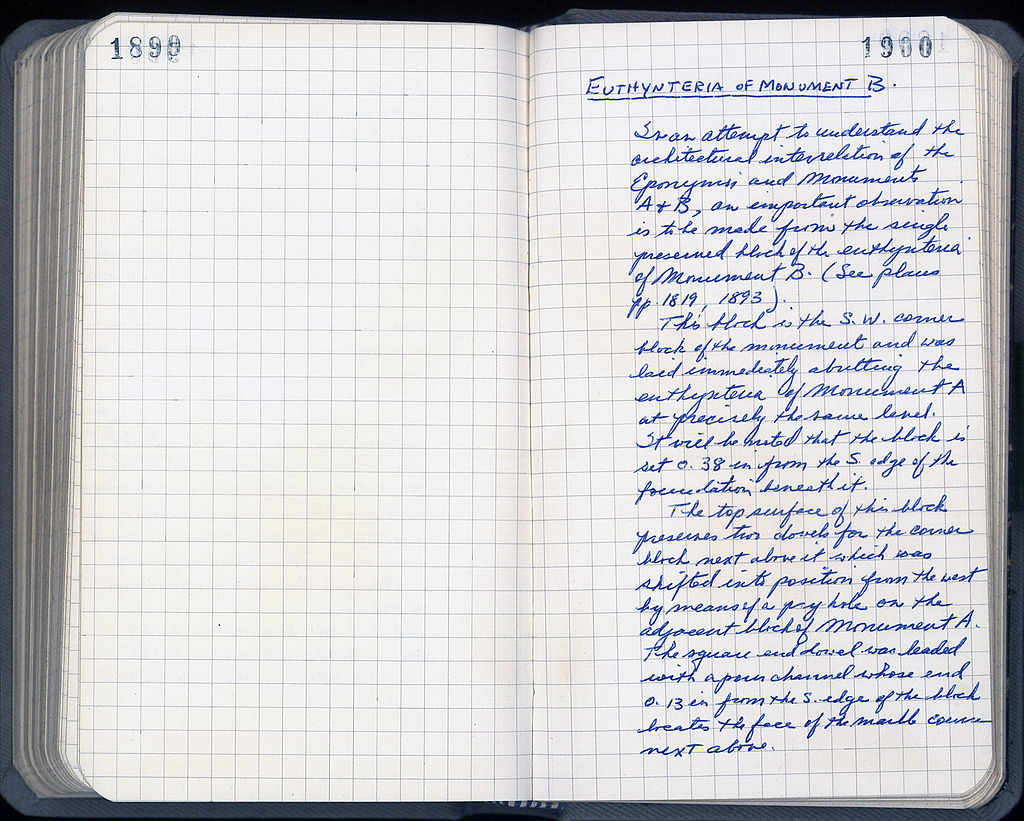 1899
1900
EUTHYNTERIA OF MONUMENT B.
In an attempt to understand the
architectural interrelation of the
Eponymoi and Monuments
A + B, an important observation
is to be made from the single
preserved block of the euthynteria
of Monument B. (See plans
pp 1819, 1893).
This block is the S.W. corner
block of the monument and was
laid immediately abutting the
euthynteria of Monument A
at precisely the same level.
It will be noted that the block is
set 0.38 in from the S. edge of the
foundation beneath it.
The top surface of this block
preserves two dowels for the corner
block next above it which was
shifted into position from the west
by means of a pry hole on the
adjacent block of Monument A.
The square end dowel was leaded
with a pour channel whose end
0.13 in from the S. edge of the block
locates the face of the marble course
next above.